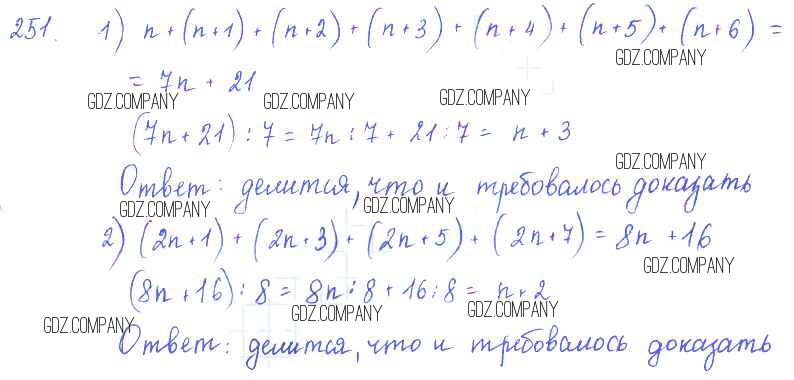 251. 1) n + (n+1) + (n+2) + (n+3) + (n+4) + (n+5) + (n+6) =
GDZ.COMPANY
= 7n + 21
GDZ.COMPANY GDZ.COMPANY GDZ.COMPANY
(7n + 21) : 7 = 7n : 7 + 21 : 7 = n + 3
GDZ.COMPANY
Ответ: делится, что и требовалось доказать
GDZ.COMPANY GDZ.COMPANY
2) (2n+1) + (2n+3) + (2n+5) + (2n+7) = 8n + 16
GDZ.COMPANY
(8n + 16) : 8 = 8n : 8 + 16 : 8 = n + 2
GDZ.COMPANY GDZ.COMPANY GDZ.COMPANY
Ответ: делится, что и требовалось доказать